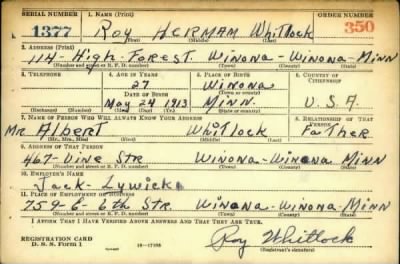 SERIAL NUMBER 1. NAME (Print) ORDER NUMBER
1377 Roy HERMAM Whitlock 350
(First) (Middle) (Last)
2. ADDRESS (Print)
114- High-Forest. Winona-Winona-Minn
(Number and street or R. F. D. number) (Town) (County) (State)
3. TELEPHONE 4. AGE IN YEARS 5. PLACE OF BIRTH 6. COUNTRY OF CITIZENSHIP
27 Winona
DATE OF BIRTH (Town or county)
May 24 1913 Minn. U.S.A.
(Exchange) (Number) (Mo.) (Day) (Yr.) (State or country)
7. NAME OF PERSON WHO WILL ALWAYS KNOW YOUR ADDRESS 8. RELATIONSHIP OF THAT PERSON
Mr. Albert Whitlock Father
(Mr., Mrs., Miss) (First) (Middle) (Last)
9. ADDRESS OF THAT PERSON
467-Vine Str Winona-Winona-Minn
(Number and street or R. F. D. number) (Town) (County) (State)
10. EMPLOYER'S NAME
Jack-Lywick
11. PLACE OF EMPLOYMENT OR BUSINESS
759-E-6th Str Winona-Winona-Minn
(Number and street or R. F. D. number) (Town) (County) (State)
I AFFIRM THAT I HAVE VERIFIED ABOVE ANSWERS AND THAT THEY ARE TRUE.
REGISTRATION CARD
D. S. S. Form 1 Roy Whitlock
(Registrant's signature)